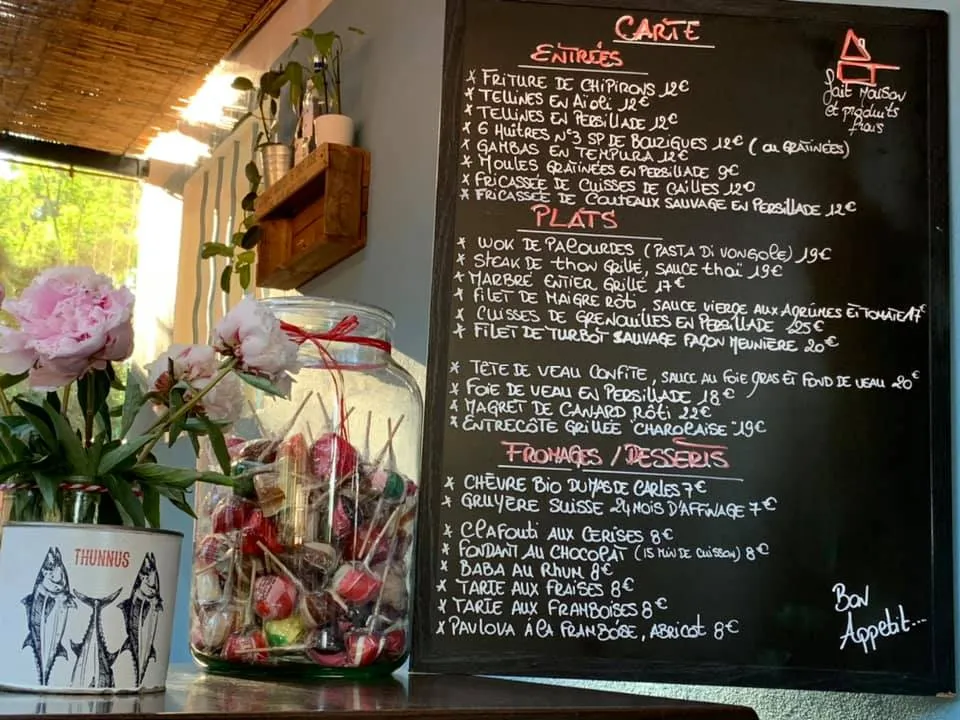 CARTE
fait Maison
et produits
frais
ENTRÉES
* FRITURE DE CHIPIRONS 12€
* TELLINES EN AïOLI 12€
* TELLINES EN PERSILLADE 12€
* 6 HUÎTRES N°3 SP DE BOUZIGUES 12€ (OU GRATINÉES)
* GAMBAS EN TEMPURA 12€
* MOULES GRATINÉES EN PERSILLADE 9€
* FRICASSÉE DE CUISSES DE CAILLES 12€
* FRICASSÉE DE COUTEAUX SAUVAGE EN PERSILLADE 12€
PLATS
* WOK DE PALOURDES (PASTA DI VONGOLE) 19€
* STEAK DE THON GRILLÉ, SAUCE THAÏ 19€
* MARBRÉ ENTIER GRILLÉ 17€
* FILET DE MAIGRE RÔTI, SAUCE VIERGE AUX AGRUMES ET TOMATE 17€
* CUISSES DE GRENOUILLES EN PERSILLADE 25€
* FILET DE TURBOT SAUVAGE FAÇON MEUNIÈRE 20€
* TÊTE DE VEAU CONFITE, SAUCE AU FOIE GRAS ET FOND DE VEAU 20€
* FOIE DE VEAU EN PERSILLADE 18€
* MAGRET DE CANARD RÔTI 22€
* ENTRECÔTE GRILLÉE "CHAROLAISE" 19€
FROMAGES / DESSERTS
* CHÈVRE BIO DU MAS DE CARLES 7€
* GRUYÈRE SUISSE 24 MOIS D'AFFINAGE 7€
* CLAFOUTI AUX CERISES 8€
* FONDANT AU CHOCOLAT (15 MIN DE CUISSON) 8€
* BABA AU RHUM 8€
* TARTE AUX FRAISES 8€
* TARTE AUX FRAMBOISES 8€
* PAVLOVA À LA FRAMBOISE, ABRICOT 8€
Bon
Appetit...
THUNNUS